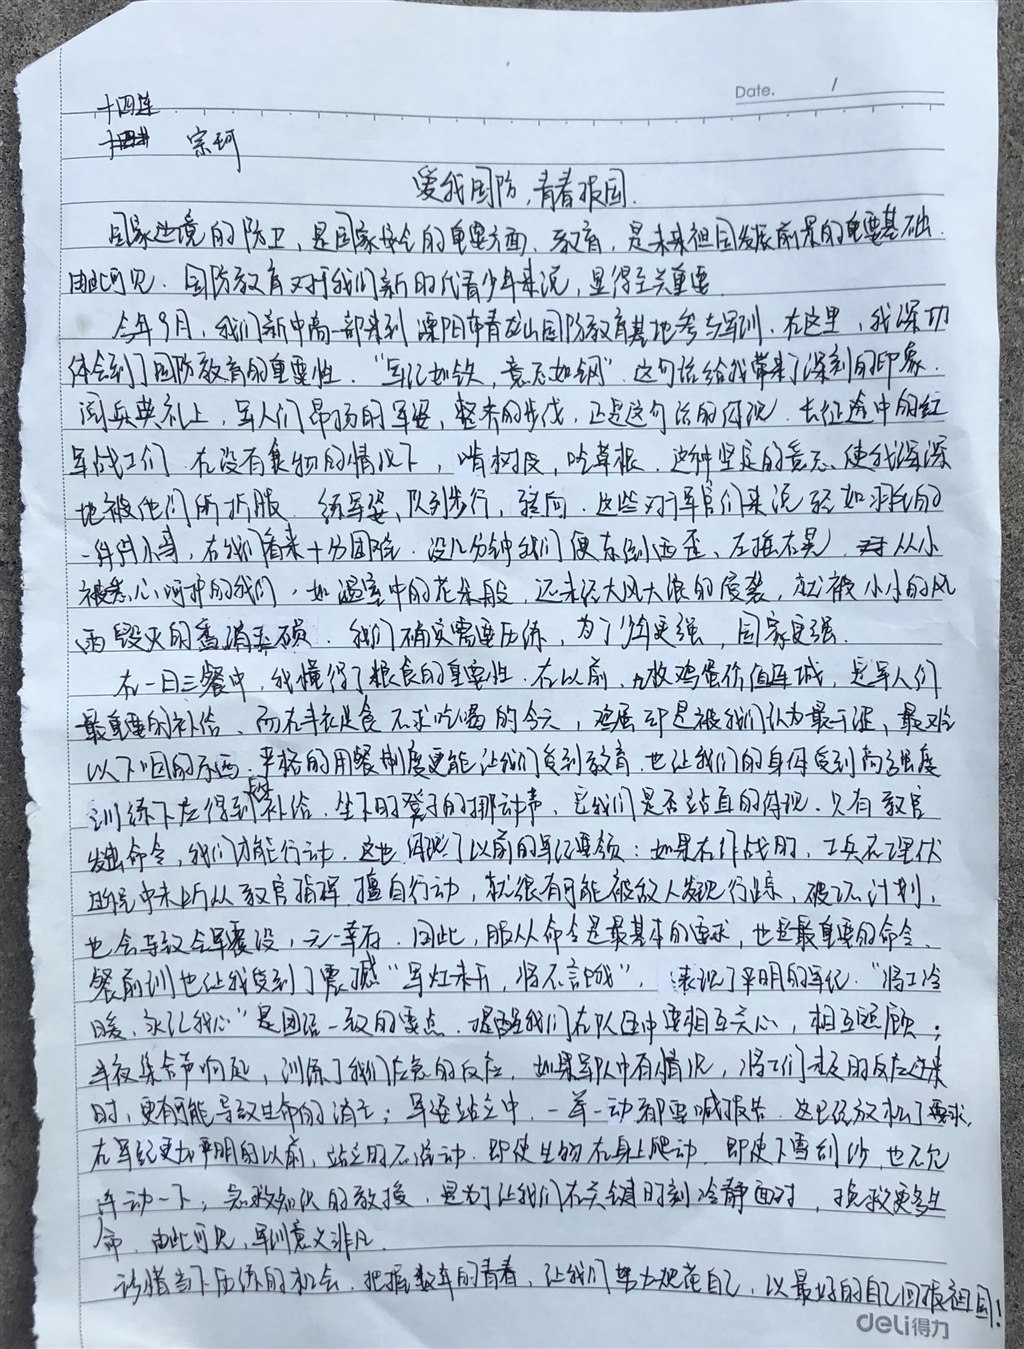 Date. /
十四连
宗珂
爱我国防,青春报国.
国家边境的防卫,是国家安全的重要方面、教育,是未来祖国发展前景的重要基础.
由此可见.国防教育对于我们新时代青少年来说,显得至关重要.
今年9月,我们新中高一部来到溧阳市青龙山国防教育基地参与军训.在这里,我深切
体会到了国防教育的重要性."军纪如铁,意志如钢".这句话给我带来了深刻的印象.
阅兵典礼上,军人们昂扬的军姿,整齐的步伐,正是这句话的体现.长征途中的红
军战士们 在没有食物的情况下,啃树皮,吃草根.这种坚定的意志、使我深深
地被他们所折服.练军姿、队列步行,转向.这些对于军官们来说 轻如羽毛的
一件件小事,在我们看来十分困难.没几分钟我们便东倒西歪、左摇右晃.从小
被悉心呵护的我们,如温室中的花朵般,还未经大风大浪的侵袭,就被小小的风
雨毁灭的香消玉殒.我们确实需要历练,为了少年更强,国家更强.
在一日三餐中,我懂得了粮食的重要性.在以前、一枚鸡蛋价值连城,是军人们
最重要的补给、而在丰衣足食不求吃喝的今天,鸡蛋却是被我们认为最干涩,最难
以下咽的东西.严格的用餐制度更能让我们受到教育.也让我们的身体受到高强度
训练下应得到的补给.坐下时凳子的挪动声,是我们是否站直的体现.只有教官
发出命令,我们才能行动.这也体现了以前的军纪要领:如果在作战时,士兵在埋伏
中未听从教官指挥 擅自行动,就很有可能被敌人发现行踪,破坏计划,
也会导致全军覆没,无一幸存.因此,服从命令是最基本的要求,也是最重要的命令、
餐前训也让我受到了震撼"军灶未开,将不言饿",表现了严明的军纪."将士冷
暖,永记我心"是团结一致的要点.提醒我们在队伍中要相互关心,相互照顾;
半夜集合声响起,训练了我们应急的反应,如果军队中有情况,将士们
时,更有可能导致生命的消亡;军姿站立中,一举一动都要喊报告.这已经放松了要求,
在军纪更为严明的以前,站立时不准动.即使生物在身上爬动.即使下雪刮沙,也不允
许动一下;急救知识的教授.是为了让我们在关键时刻冷静面对,挽救更多生
命.由此可见,军训意义非凡.
珍惜当下历练的机会.把握数年的青春,让我们努力把自己、以最好的自己回报祖国!
deli得力